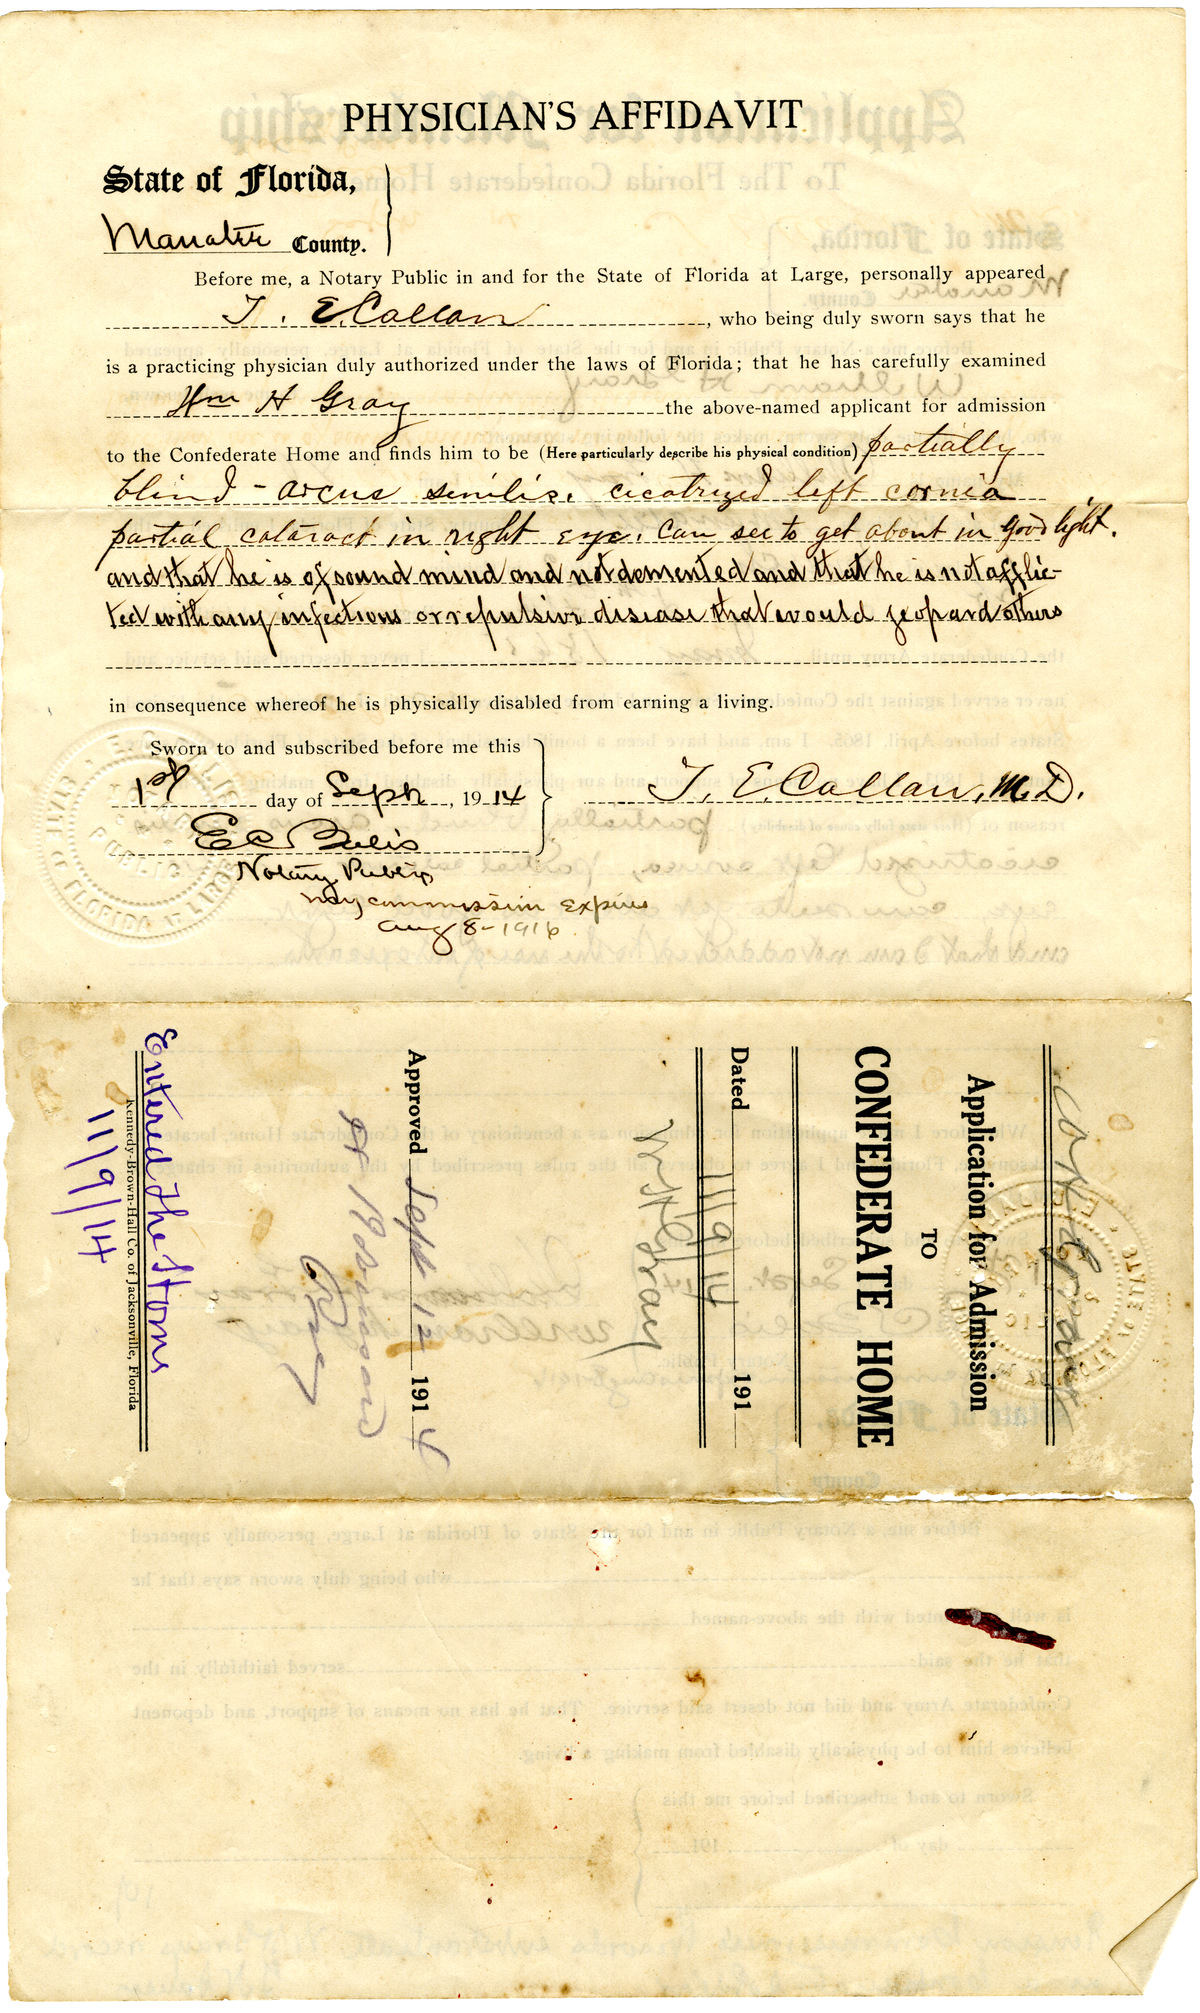 PHYSICIAN'S AFFIDAVIT
State of Florida,
Manatee County.
Before me, a Notary Public in and for the State of Florida at Large, personally appeared
T. E. Callan, who being duly sworn says that he
is a practicing physician duly authorized under the laws of Florida; that he has carefully examined
Wm H Gray the above-named applicant for admission
to the Confederate Home and finds him to be (Here particularly describe his physical condition) partially
blind - arcus senilis. cicatrized left cornia
partial cataract in right eye. Can see to get about in good light.
and that he is of sound mind and not demented and that he is not afflic-
ted with any infections or repulsive disease that would jeopard others
in consequence whereof he is physically disabled from earning a living.
Sworn to and subscribed before me this
1st day of Sept, 1914
T. E. Callan, M.D.
Notary Public
my commission expires
Aug 8-1916
Application for Admission
TO
CONFEDERATE HOME
Dated 11/9/14 191
W H Gray
Approved Sept 12 1914
Entered the Home
11/9/14
Kennedy-Brown-Hall Co. of Jacksonville, Florida